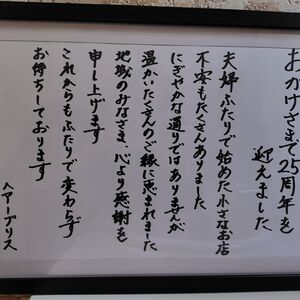 おかげさまで25周年を
迎えました
夫婦ふたりで始めた小さなお店
不安もたくさんありました
にぎやかな通りではありませんが
温かいたくさんのご縁に恵まれました
地域のみなさま、心より感謝を
申し上げます
これからもふたりで変わらず
お待ちしております
ヘアーブリス